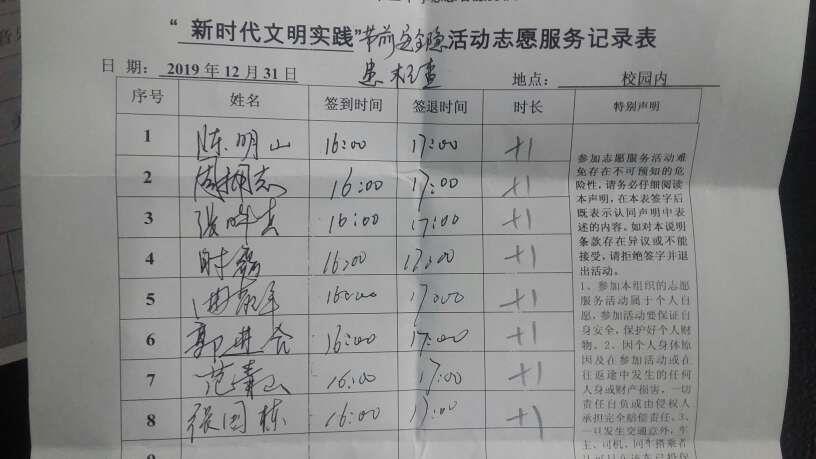 “ 新时代文明实践”节前安全隐活动志愿服务记录表
患检查
日 期： 2019 年 12 月 31 日 地点： 校园内
序号 姓名 签到时间 签退时间 时长 特别声明
1 陈明山 16:00 17:00 +1
2 周拥志 16:00 17:00 +1
3 16:00 17:00 +1
4 时磊 16:00 17:00 +1
5 16:00 17:00 +1
6 郭进合 16:00 17:00 +1
7 范清山 16:00 17:00 +1
8 张国栋 16:00 17:00 +1
参加志愿服务活动难
免存在不可预知的危
险性，请务必仔细阅读
本声明，在本表签字后
既表示认同声明中表
述的内容。如对本说明
条款存在异议或不能
接受，请拒绝签字并退
出活动。
1、参加本组织的志愿
服务活动属于个人自
愿，参加活动要保证自
身安全，保护好个人财
物。2、因个人身体原
因及在参加活动或在
往返途中发生的任何
人身或财产损害，一切
责任自负或由侵权人
承担完全赔偿责任。3、
一旦发生交通意外，车
主、司机、同车搭乘者